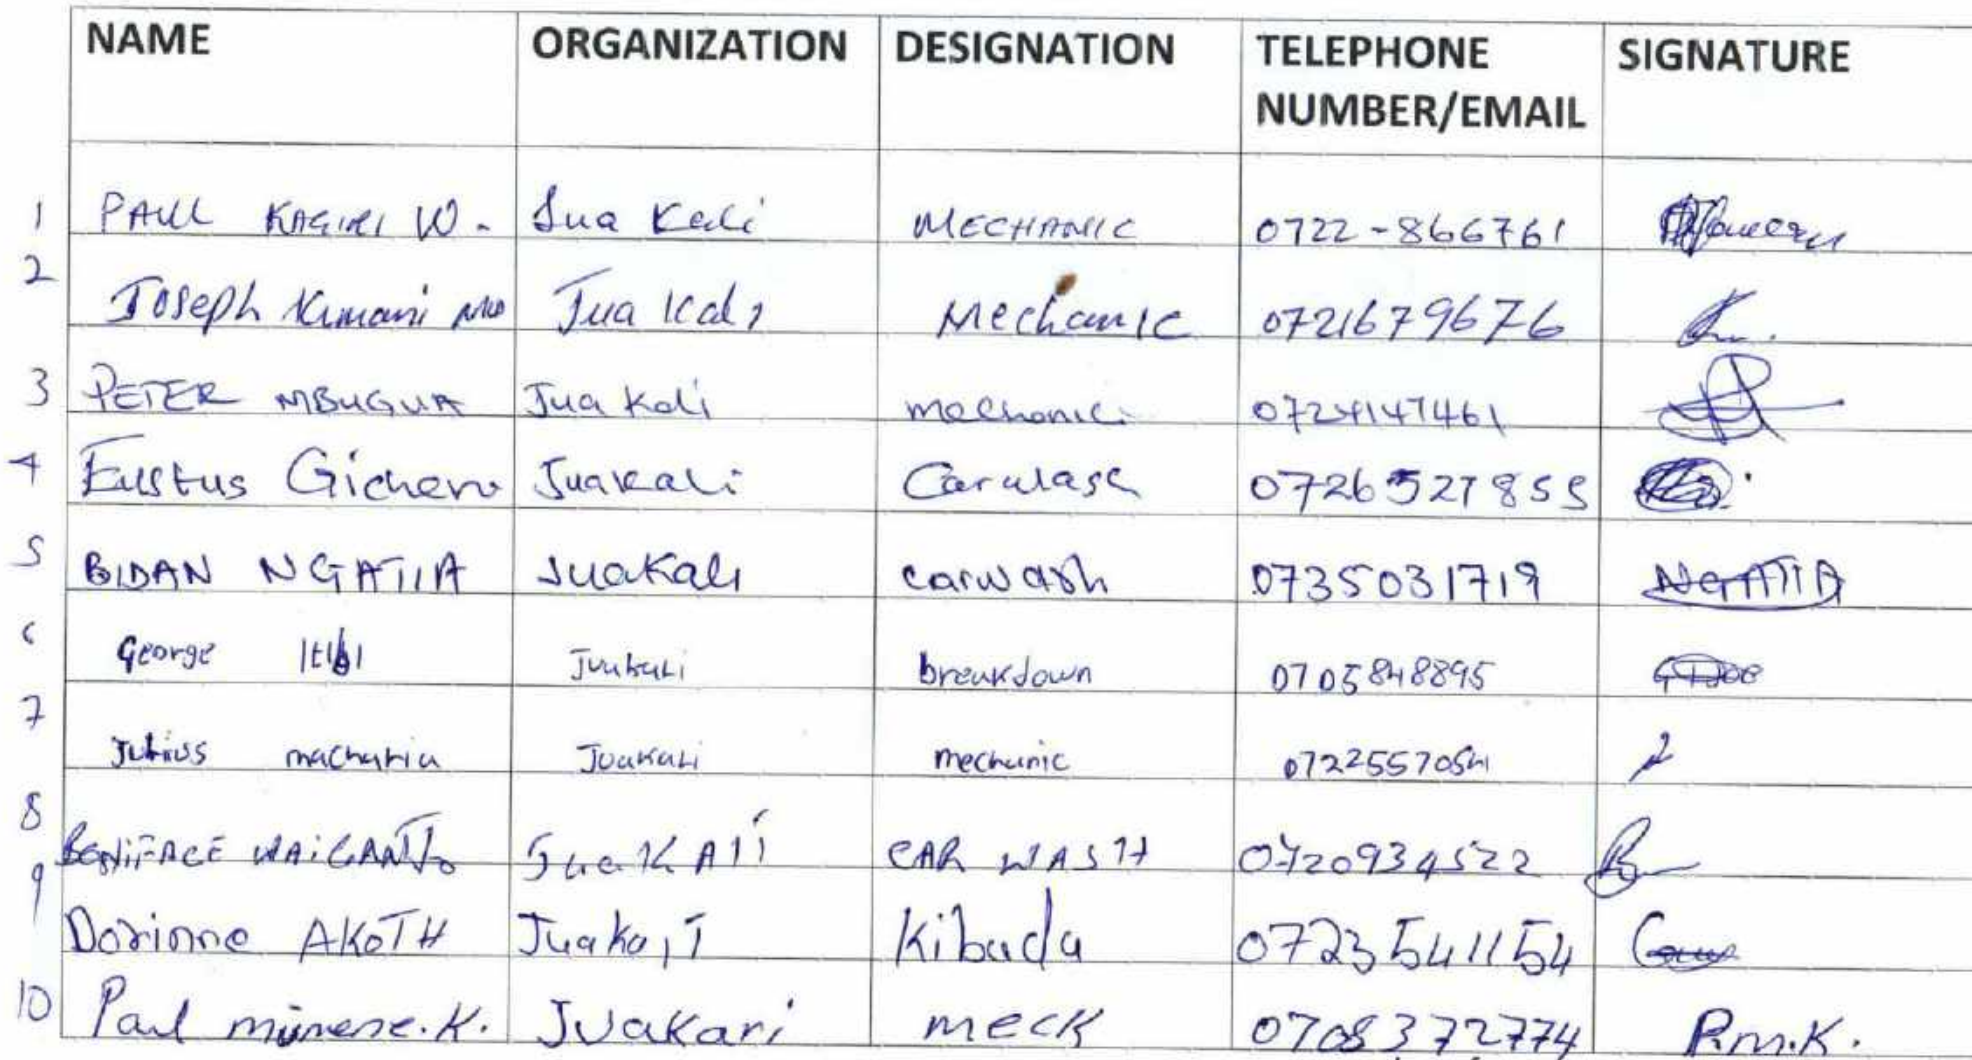 NAME ORGANIZATION DESIGNATION TELEPHONE NUMBER/EMAIL SIGNATURE
1 PAUL KAGIRI W. Jua Kali MECHANIC 0722-866761
2 Joseph Kimani Jua Kali Mechanic 0721679676
3 PETER MBUGUA Jua Kali mechanic
4 Eustus Gicheru Juakali Carwash 0726527855
5 BIDAN NGATIIA JuaKali carwash 0735031719 NGATIIA
6 George Juakali breakdown 0705848895
7 Julius macharia JuaKali mechanic 0722557054
8 BONIFACE JuaKAli CAR WASH 0720934522
9 Dorinne AKOTH Juakali Kibada 0723541154
10 Paul munene.K. JuaKari meck 0708372774 P.m.K.